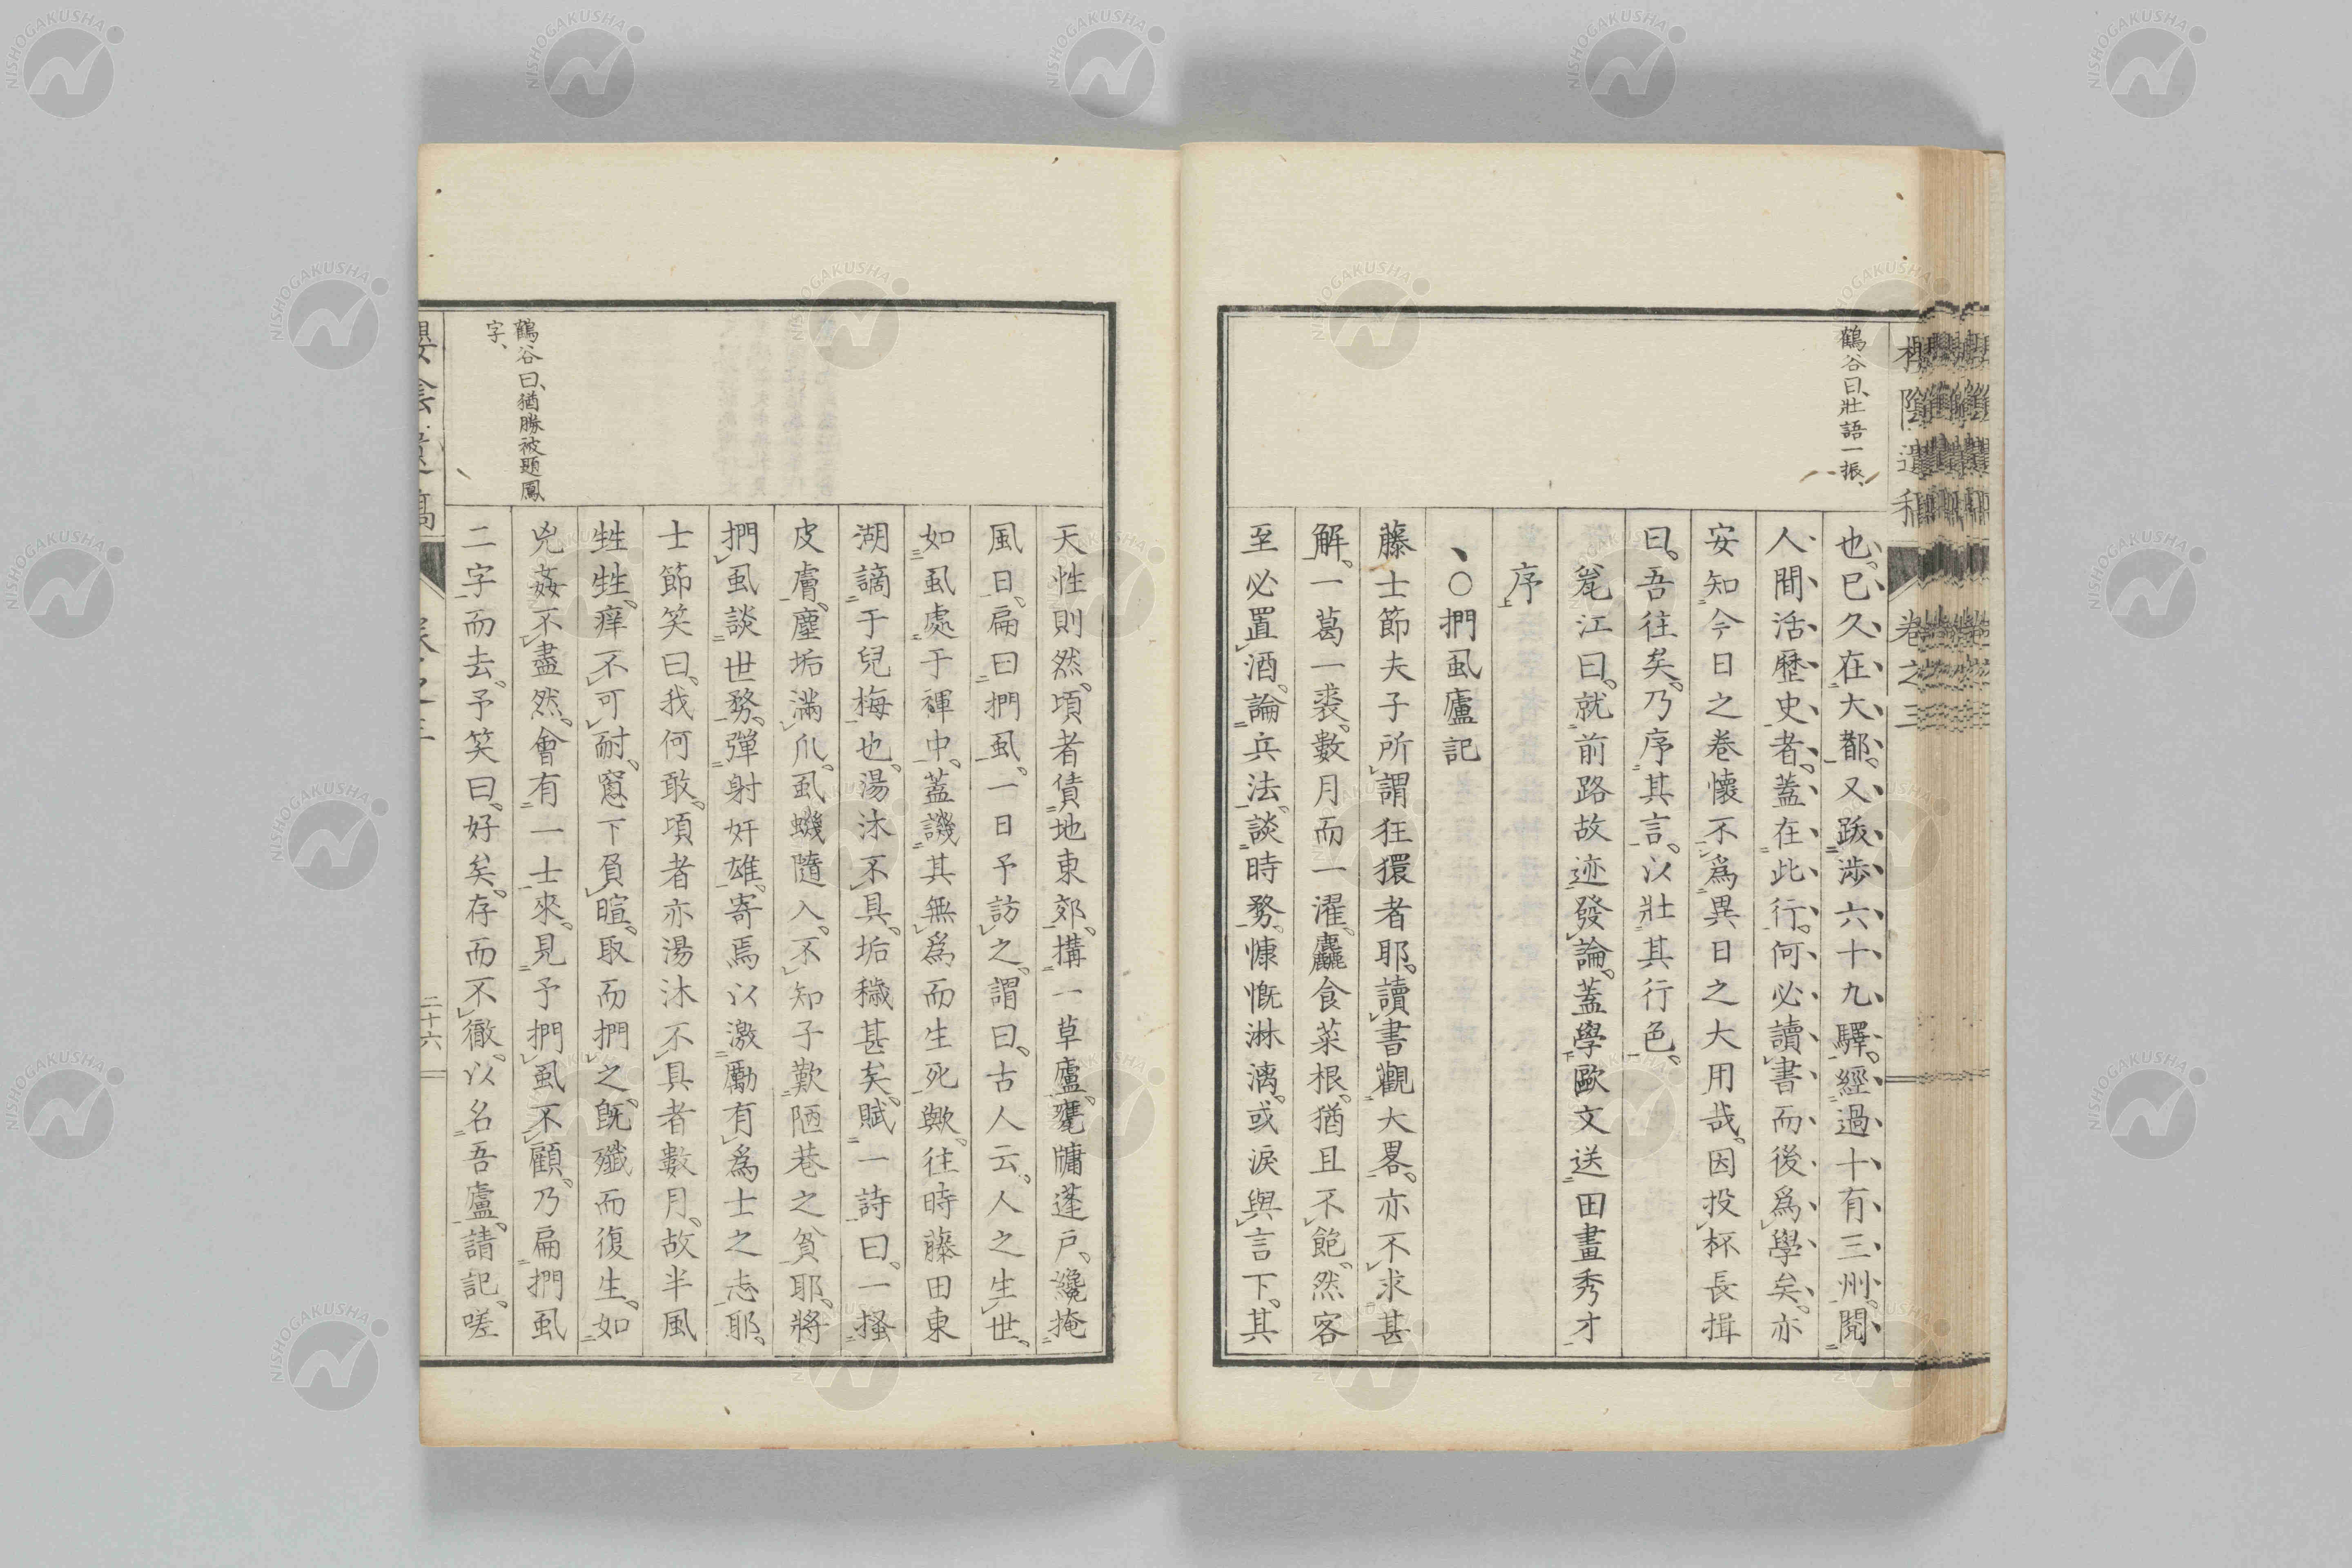 鶴谷曰、壯語一振、
也、已久在大都、又跋涉六十九驛、經過十有三州、閱
人間活歷史者、蓋在此行、何必讀書而後爲學矣、亦
安知今日之卷懷不爲異日之大用哉、因投杯長揖
曰、吾往矣、乃序其言、以壯其行色、
瓮江曰、就前路故迹發論、蓋學歐文送田畫秀才
序
、○捫虱廬記
藤士節夫子所謂狂獧者耶、讀書觀大畧、亦不求甚
解、一葛一裘、數月而一濯、麤食菜根、猶且不飽、然客
至必置酒、論兵法、談時務、慷慨淋漓、或淚與言下、其
天性則然、頃者債地東郊、搆一草廬、甕牖蓬戶、纔掩
風日、扁曰捫虱、一日予訪之、謂曰、古人云、人之生世、
如虱處于褌中、蓋譏其無爲而生死歟、往時藤田東
湖謫于兒梅也、湯沐不具、垢穢甚矣、賦一詩曰、一搔
皮膚塵垢滿爪、虱蟣隨入、不知子歎陋巷之貧耶、將
捫虱談世務、彈射奸雄、寄焉以激勵有爲士之志耶、
士節笑曰、我何敢、頃者亦湯沐不具者數月、故半風
甡甡、痒不可耐、窻下負暄、取而捫之、旣殲而復生、如
兇姦不盡然、會有一士來、見予捫虱不顧、乃扁捫虱
二字而去、予笑曰、好矣、存而不徹、以名吾廬、請記、嗟
鶴谷曰、猶勝被題鳳
字、
卷之三
二十六